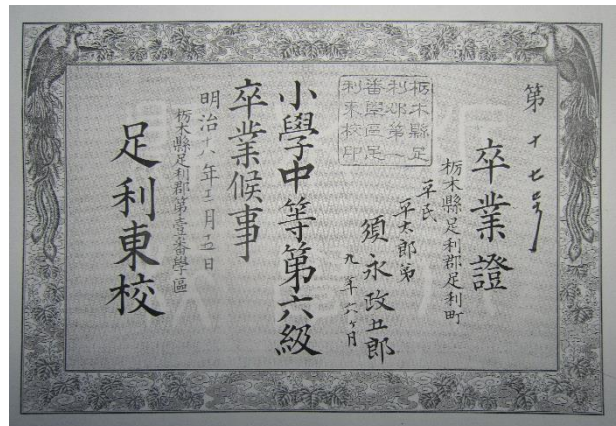 第十七号
卒業證
栃木縣足利郡足利町
平民
平太郎弟
須永政五郎
九年六ヶ月
栃木縣足
利郡第一
番學區足
利東校印
小學中等第六級
卒業候事
明治十八年三月十五日
栃木縣足利郡第壹番學區
足利東校